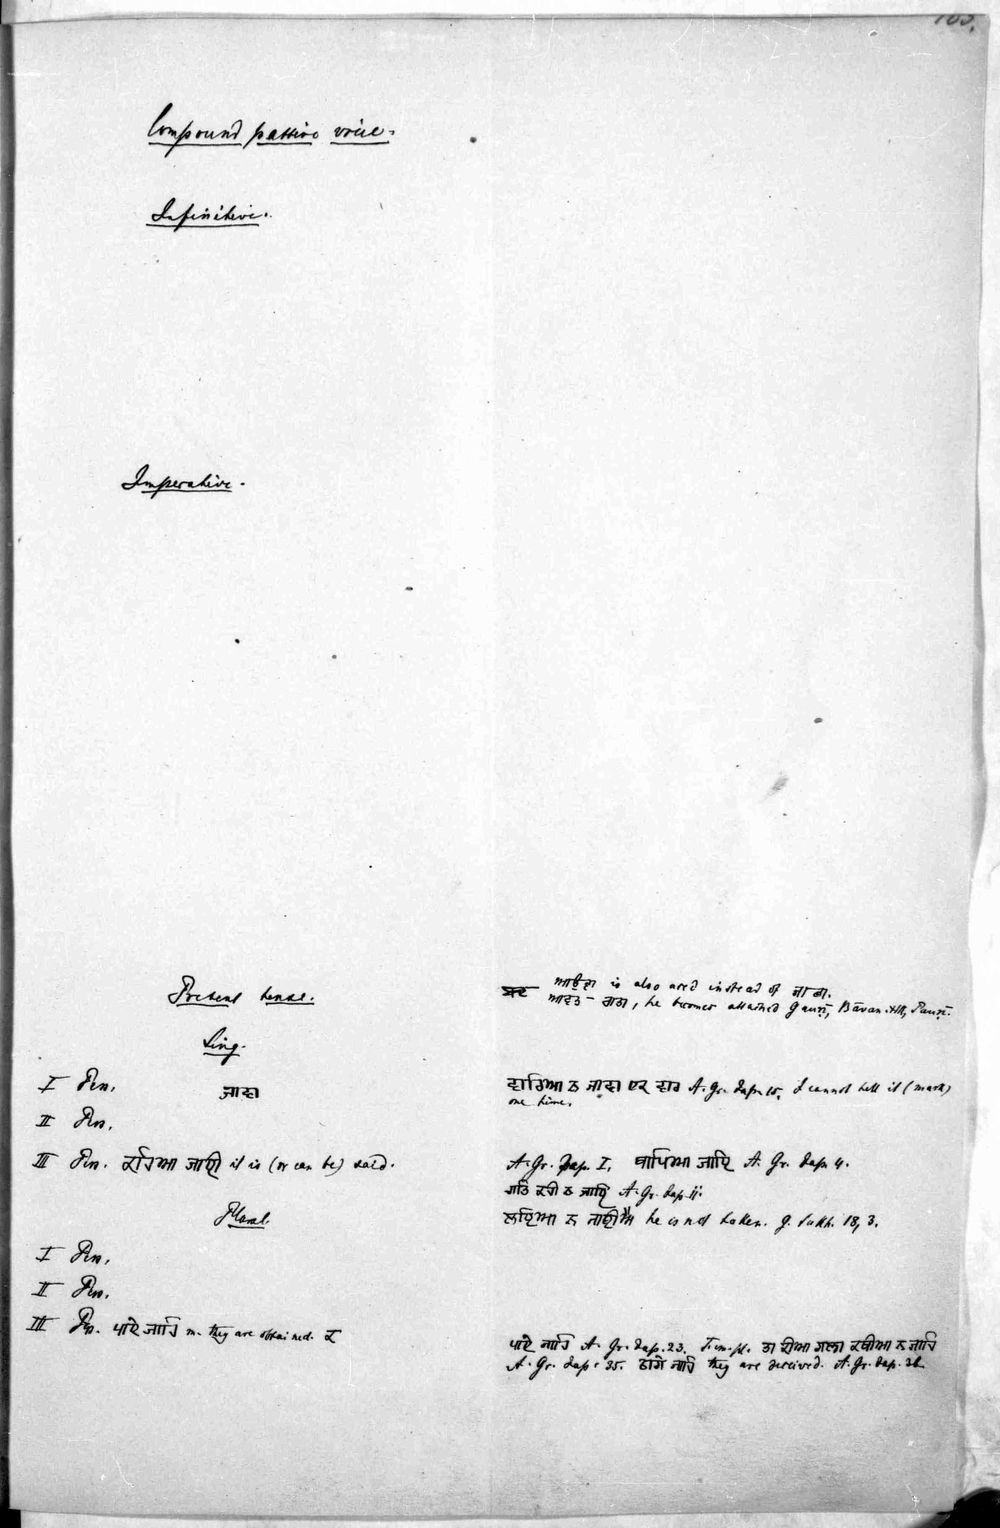 Compound passive voice.
Infinitive.
Imperative.
Present tense.
ਆਉਣਾ is also used instead of ਜਾਣਾ.
he becomes attached Gauṛī, Bāvan. Pauṛī.
Sing.
I Pers. ਜਾਵਾ
ਵਾਰਿਆ ਨ ਜਾਵਾ ਏਕ ਵਾਰ A. Gr. Jap. I cannot tell it (mark)
one time.
II Pers.
III Pers. ਕਹਿਆ ਜਾਈ it is (or can be) said.
A. Gr. Jap. I. ਥਾਪਿਆ ਜਾਇ A. Gr. Jap. 4.
ਗਤਿ ਕਹੀ ਨ ਜਾਇ A. Gr. Jap. 11.
Plural.
ਲਇਆ ਨ he is not taken. G. Sukh. 18, 3.
I Pers.
II Pers.
III Pers. ਪਾਏ ਜਾਹਿ m. they are obtained. ਕ
ਪਾਏ ਜਾਹਿ A. Gr. Jap. 23. Fem. pl. ਤਾ ਕੀਆ ਗਲਾ ਕਥੀਆ ਨ ਜਾਹਿ
A. Gr. Jap. 35. ਠਾਗੇ ਜਾਹਿ they are deceived. A. Gr. Jap.